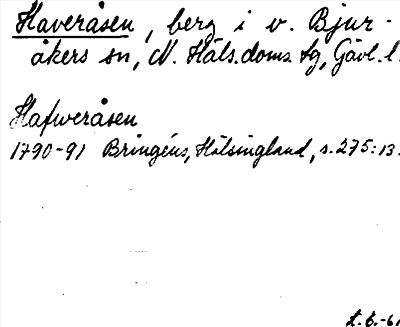 Haveråsen, berg i v. Bjur-
åkers sn, N. Häls.doms. tg, Gävl. l.
Hafweråsen
1790-91 Bringéus, Hälsingland, s. 275:13.